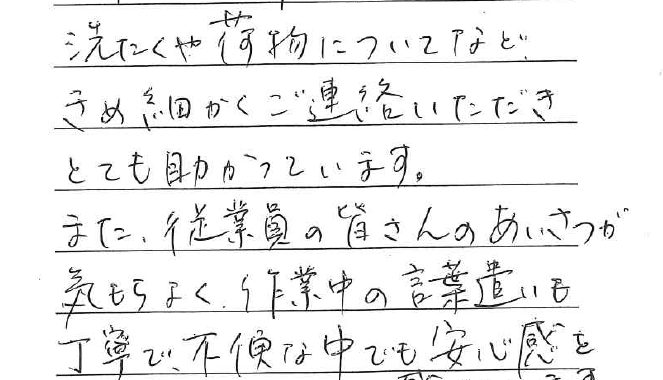 洗たくや荷物についてなど
きめ細かくご連絡いただき
とても助かっています。
また、従業員の皆さんのあいさつが
気もちよく、作業中の言葉遣いも
丁寧で、不便な中でも安心感を